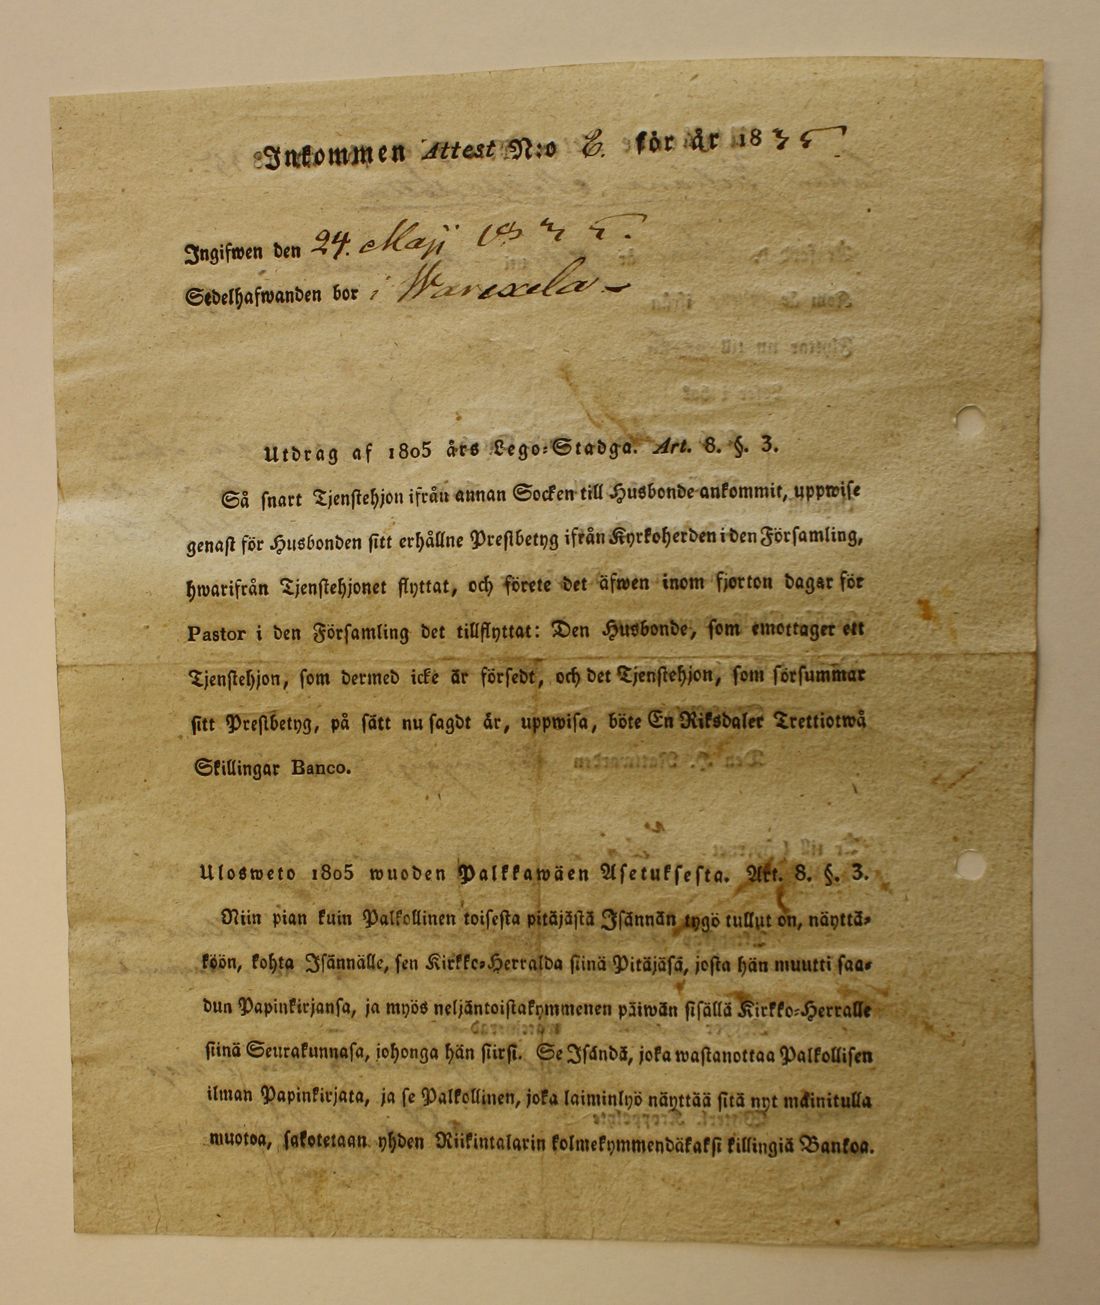 Inkommen Attest N:o E. för år 1835
Ingifwen den 24. Maji 1835.
Sedelhafwanden bor i Warexela
Utdrag af 1805 års Lego-Stadga. Art. 8. §. 3.
Så snart Tjenstehjon ifrån annan Socken till Husbonde ankommit, uppwise
genast för Husbonden sitt erhållne Prestbetyg ifrån Kyrkoherden i den Församling,
hwarifrån Tjenstehjonet flyttat, och förete det äfwen inom fjorton dagar för
Pastor i den Församling det tillflyttat: Den Husbonde, som emottager ett
Tjenstehjon, som dermed icke är försedt, och det Tjenstehjon, som försummar
sitt Prestbetyg, på sätt nu sagdt är, uppwisa, böte En Riksdaler Trettiotwå
Skillingar Banco.
Ulosweto 1805 wuoden Palkkawäen Asetuksesta. Art. 8. §. 3.
Niin pian kuin Palkollinen toisesta pitäjästä Isännän tygö tullut on, näyttä-
köön, kohta Isännälle, sen Kirkko-Herralda siinä Pitäjäsä, josta hän muutti saa-
dun Papinkirjansa, ja myös neljäntoistakymmenen päiwän sisällä Kirkko-Herralle
siinä Seurakunnasa, johonga hän siirsi. Se Isändä, joka wastanottaa Palkollisen
ilman Papinkirjata, ja se Palkollinen, joka laiminlyö näyttää sitä nyt mainitulla
muotoa, sakotetaan yhden Riikintalarin kolmekymmendäkaksi killingiä Bankoa.